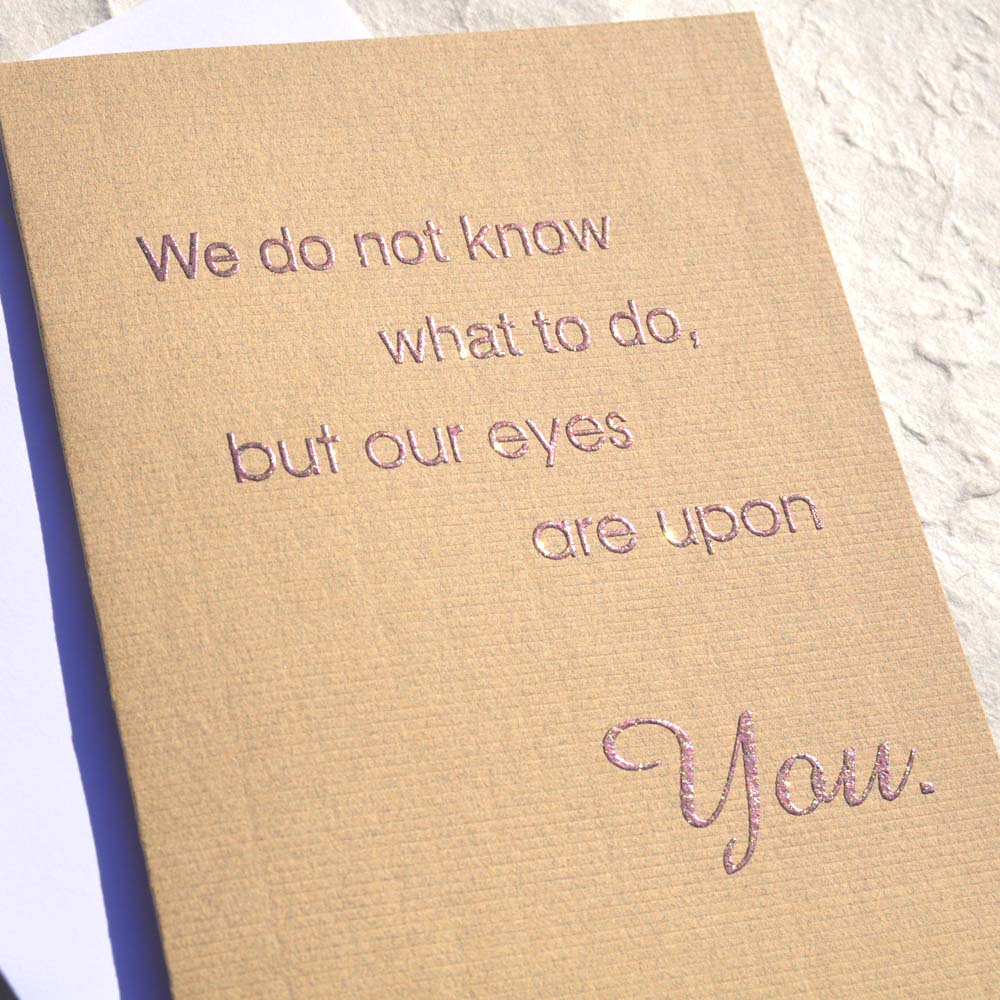 We do not know
what to do,
but our eyes
are upon
You.